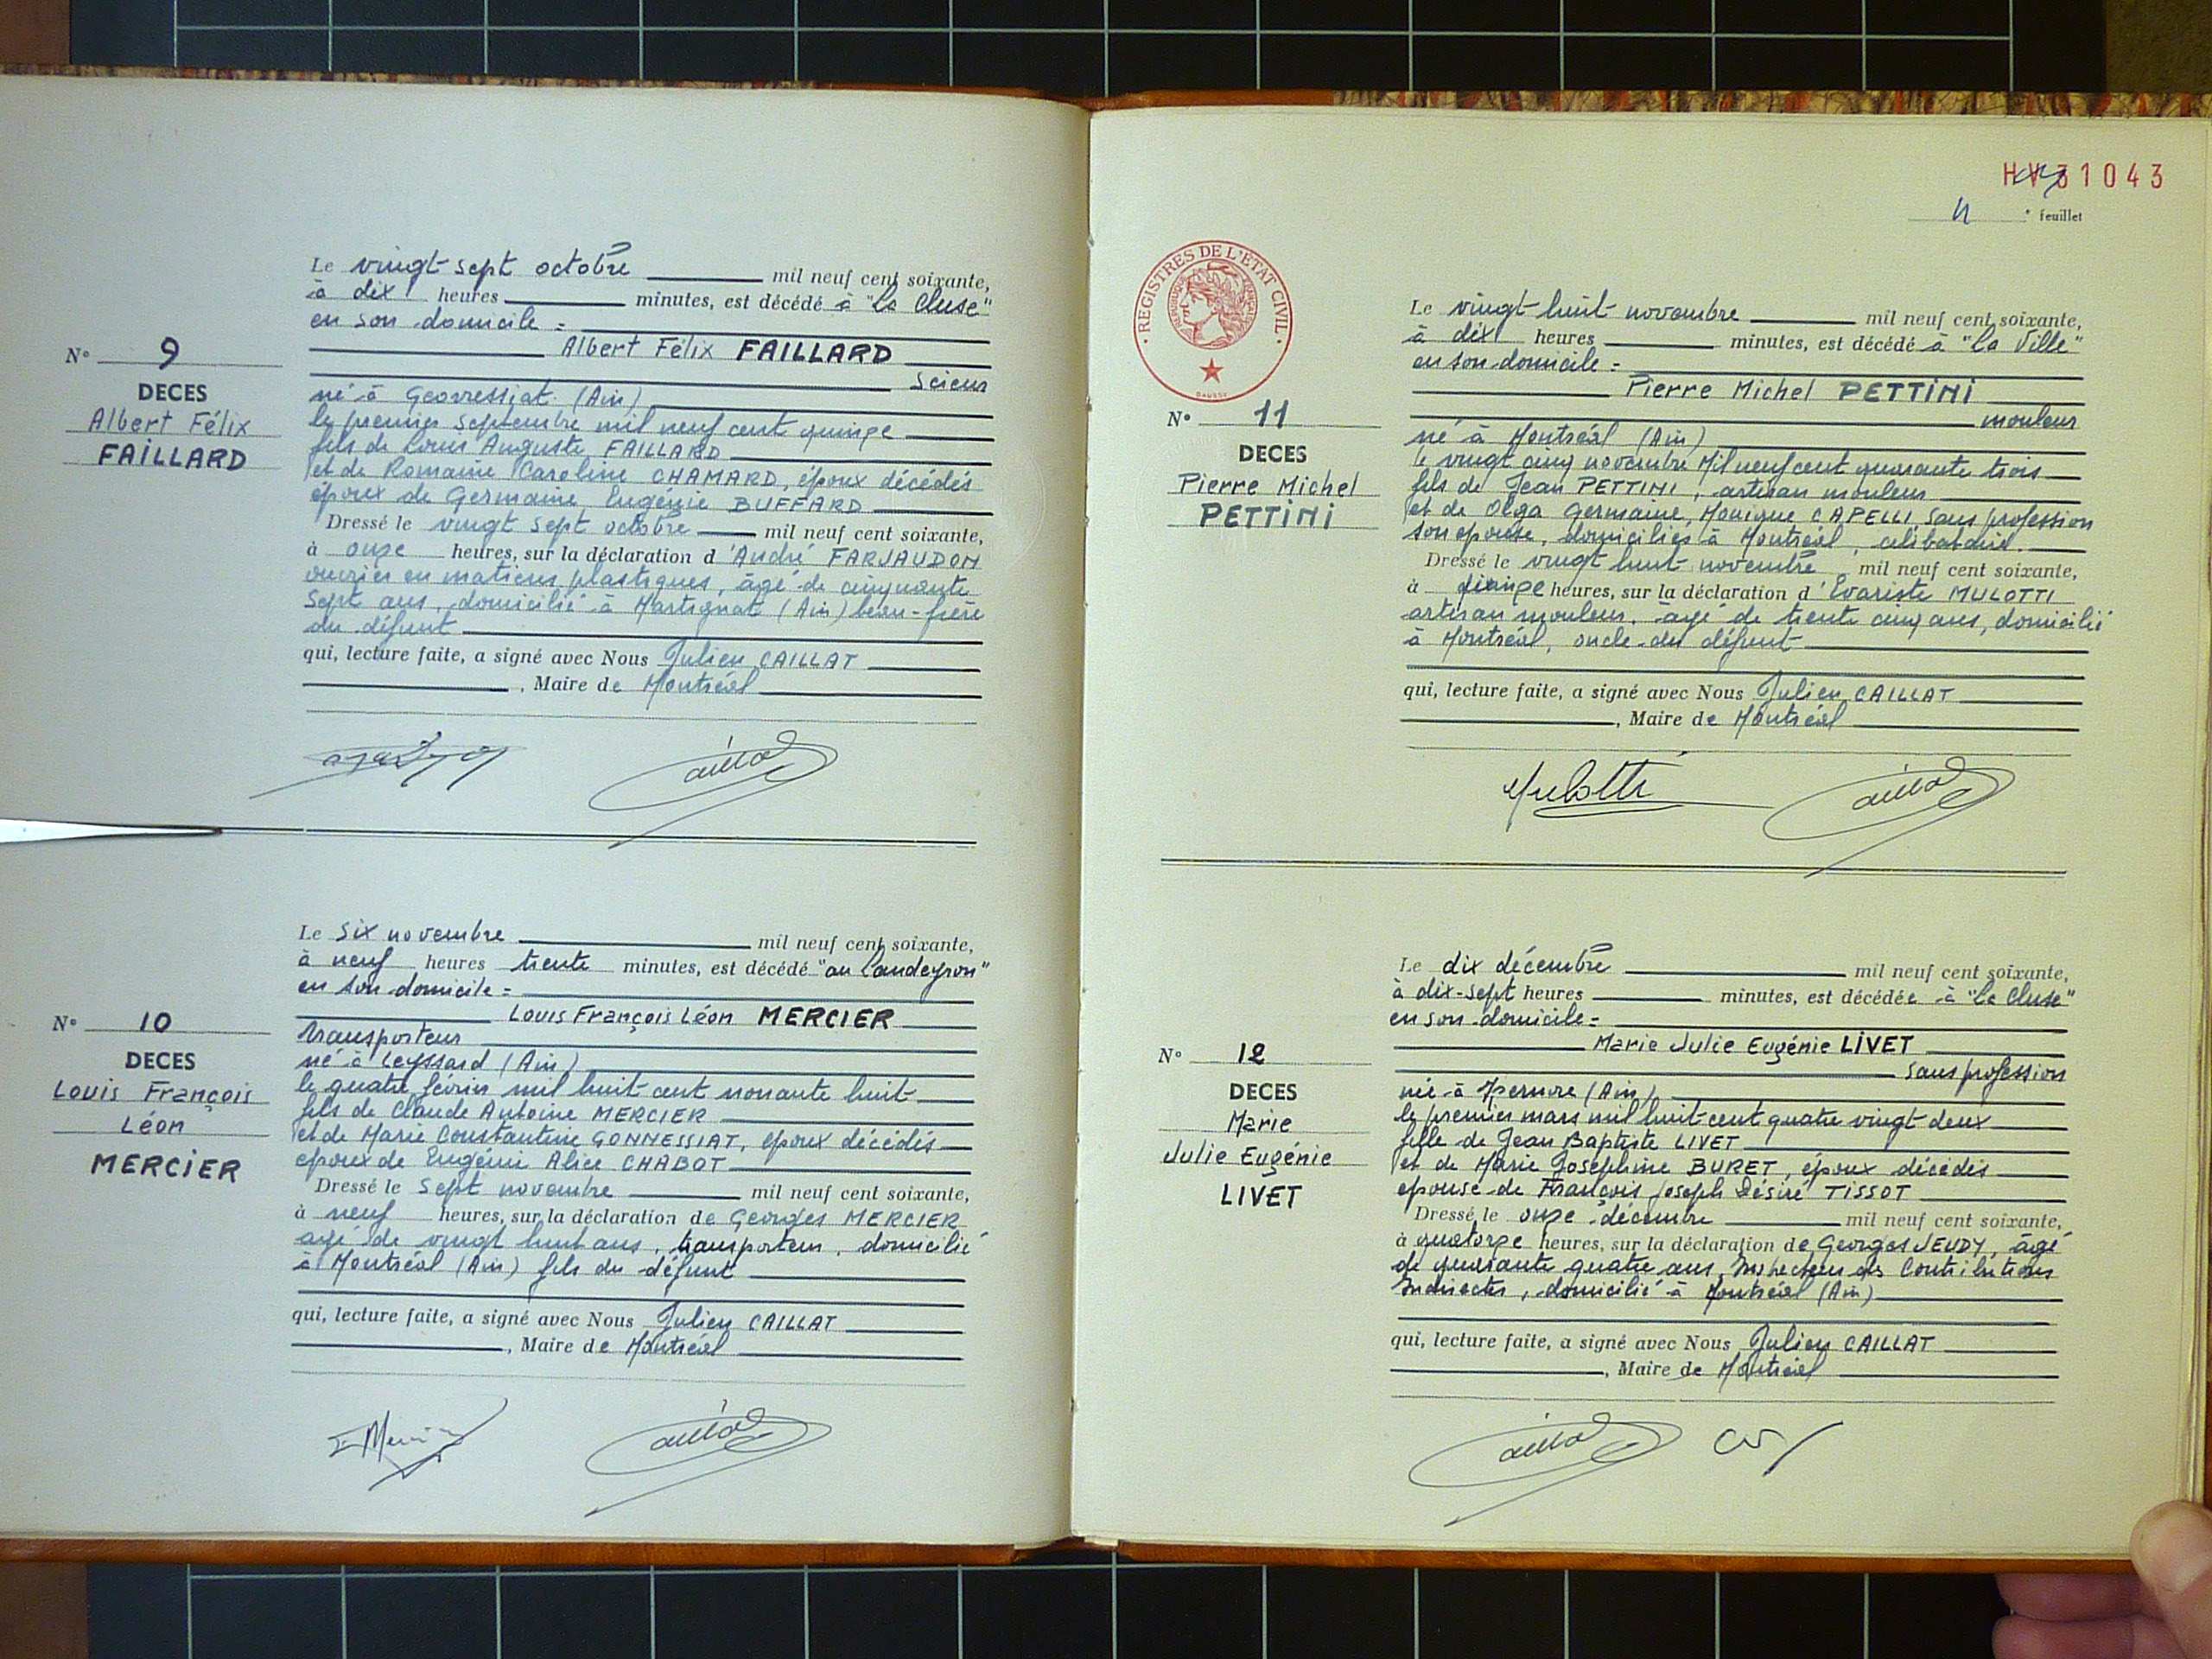 Le vingt sept octobre mil neuf cent soixante,
à dix heures minutes, est décédé à "La Cluse"
en son domicile =
Albert Félix FAILLARD
Scieur
né à Geovressiat (Ain)
le premier Septembre mil neuf cent quinze
fils de Louis Auguste FAILLARD
et de Romaine Caroline CHAMARD, époux décédés
époux de Germaine Eugénie BUFFARD
Dressé le vingt sept octobre mil neuf cent soixante,
à onze heures, sur la déclaration d'André FARJAUDON
ouvrier en matières plastiques, âgé de cinquante
sept ans, domicilié à Martignat (Ain) beau-frère
du défunt
qui, lecture faite, a signé avec Nous Julien CAILLAT
, Maire de Montréal
N° 9
DECES
Albert Félix
FAILLARD
Le six novembre mil neuf cent soixante,
à neuf heures trente minutes, est décédé "au Landeyron"
en son domicile =
Louis François Léon MERCIER
transporteur
né à Leyssard (Ain)
le quatre février mil huit cent nonante huit
fils de Claude Antoine MERCIER
et de Marie Constantine GONNESSIAT, époux décédés
époux de Eugénie Alice CHABOT
Dressé le Sept novembre mil neuf cent soixante,
à neuf heures, sur la déclaration de Georges MERCIER
agé de vingt huit ans, transporteur, domicilié
à Montréal (Ain) fils du défunt
qui, lecture faite, a signé avec Nous Julien CAILLAT
, Maire de Montréal
N° 10
DECES
Louis François
Léon
MERCIER
HV31043
4 e feuillet
REGISTRES DE L'ETAT CIVIL
Le vingt huit novembre mil neuf cent soixante,
à dix heures minutes, est décédé à "La Ville"
en son domicile =
Pierre Michel PETTINI
mouleur
né à Montréal (Ain)
le vingt cinq novembre Mil neuf cent quarante trois
fils de Jean PETTINI, artisan mouleur
et de Olga Germaine, Monique CAPELLI, sans profession
son épouse, domiciliés à Montréal, célibataire.
Dressé le vingt huit novembre mil neuf cent soixante,
à heures, sur la déclaration d'Evariste MULOTTI
artisan mouleur, âgé de trente cinq ans, domicilié
à Montréal, oncle du défunt
qui, lecture faite, a signé avec Nous Julien CAILLAT
, Maire de Montréal
Mulotti
N° 11
DECES
Pierre Michel
PETTINI
Le dix décembre mil neuf cent soixante,
à dix-sept heures minutes, est décédée à "La Cluse"
en son domicile =
Marie Julie Eugénie LIVET
sans profession
née à Izernore (Ain)
le premier mars mil huit cent quatre vingt deux
fille de Jean Baptiste LIVET
et de Marie Joséphine BURET, époux décédés
épouse de François Joseph Désiré TISSOT
Dressé le onze décembre mil neuf cent soixante,
à quatorze heures, sur la déclaration de Georges JEUDY, âgé
de quarante quatre ans, Inspecteur des Contributions
Indirectes, domicilié à Montréal (Ain)
qui, lecture faite, a signé avec Nous Julien CAILLAT
, Maire de Montréal
N° 12
DECES
Marie
Julie Eugénie
LIVET